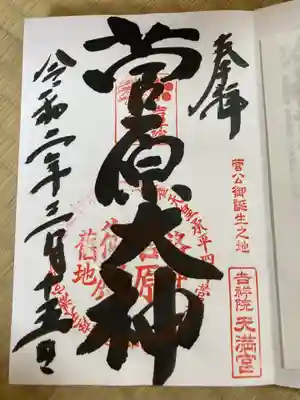 奉拝
菅公御誕生之地
吉祥院天満宮
菅原大神
令和二年三月十五日